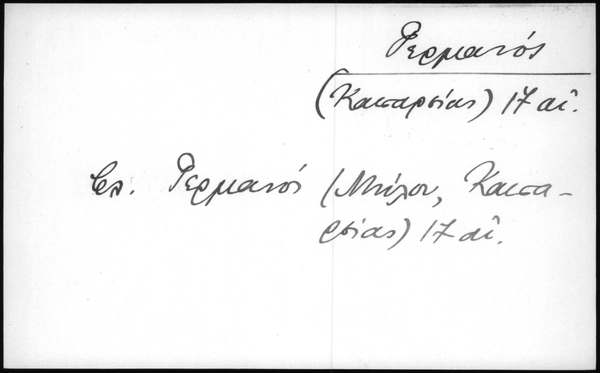 Γερμανός
(Καισαρείας) 17 αἰ.
βλ. Γερμανός (Μήλου, Καισα-
ρείας) 17 αἰ.